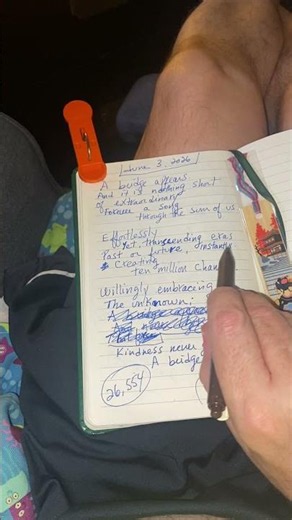 June 3, 2026
A bridge appears
And it is nothing short
of extraordinary
Forever a song
through the sum of us.
Effortlessly
Yet, transcending eras
Past or future, instantly
Creating
ten million
Willingly embracing
The unknown;
A bridge appears
Kindness never
A bridge
26,554